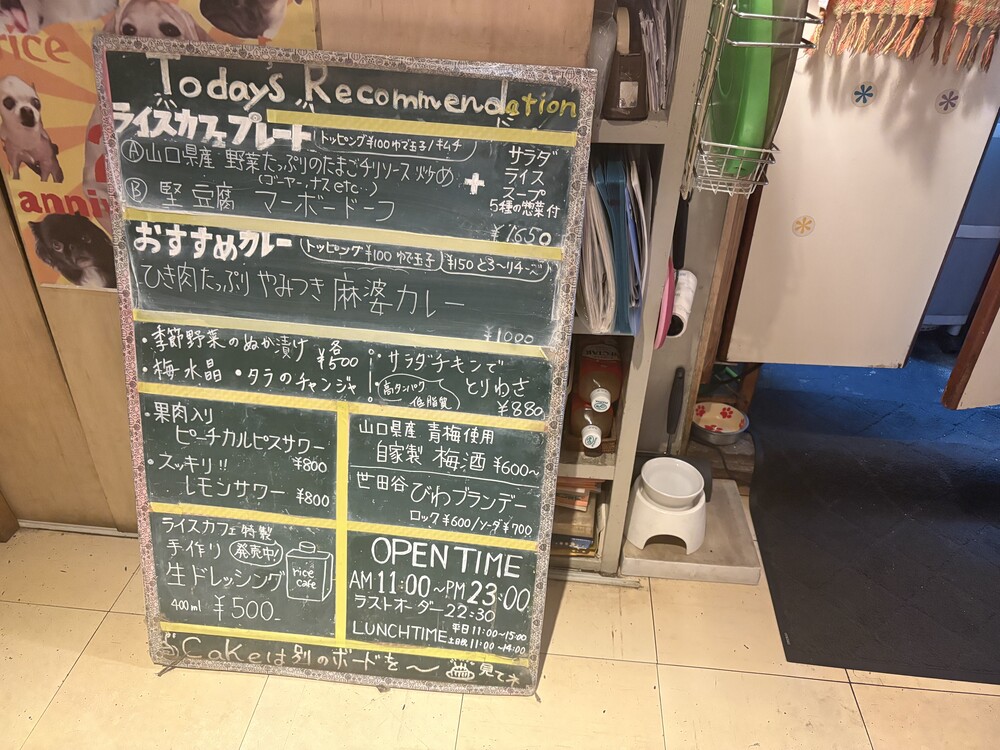 rice
anni
Today's Recommendation
ライスカフェプレート トッピング¥100 ゆで玉子/キムチ
Ⓐ山口県産 野菜たっぷりのたまごチリソース炒め
(ゴーヤー、ナス etc..)
Ⓑ 堅豆腐 マーボードーフ
+
サラダ
ライス
スープ
5種の惣菜付
¥1650
おすすめカレー トッピング¥100 ゆで玉子 ¥150 とろ〜りチーズ
ひき肉たっぷり やみつき 麻婆カレー
¥1000
・季節野菜のぬか漬け 各¥500
・梅水晶 ・タラのチャンジャ
・サラダチキンで
とりわさ
高タンパク
低脂質
¥880
・果肉入り
ピーチカルピスサワー
¥800
・スッキリ!!
レモンサワー ¥800
山口県産 青梅使用
自家製 梅酒 ¥600〜
世田谷 びわブランデー
ロック¥600/ソーダ¥700
ライスカフェ特製
手作り 発売中!
生ドレッシング
400ml ¥500-
rice
cafe
OPEN TIME
AM 11:00〜PM 23:00
ラストオーダー 22:30
LUNCHTIME 平日 11:00〜15:00
土日祝 11:00〜14:00
Cakeは別のボードを〜 見てネ